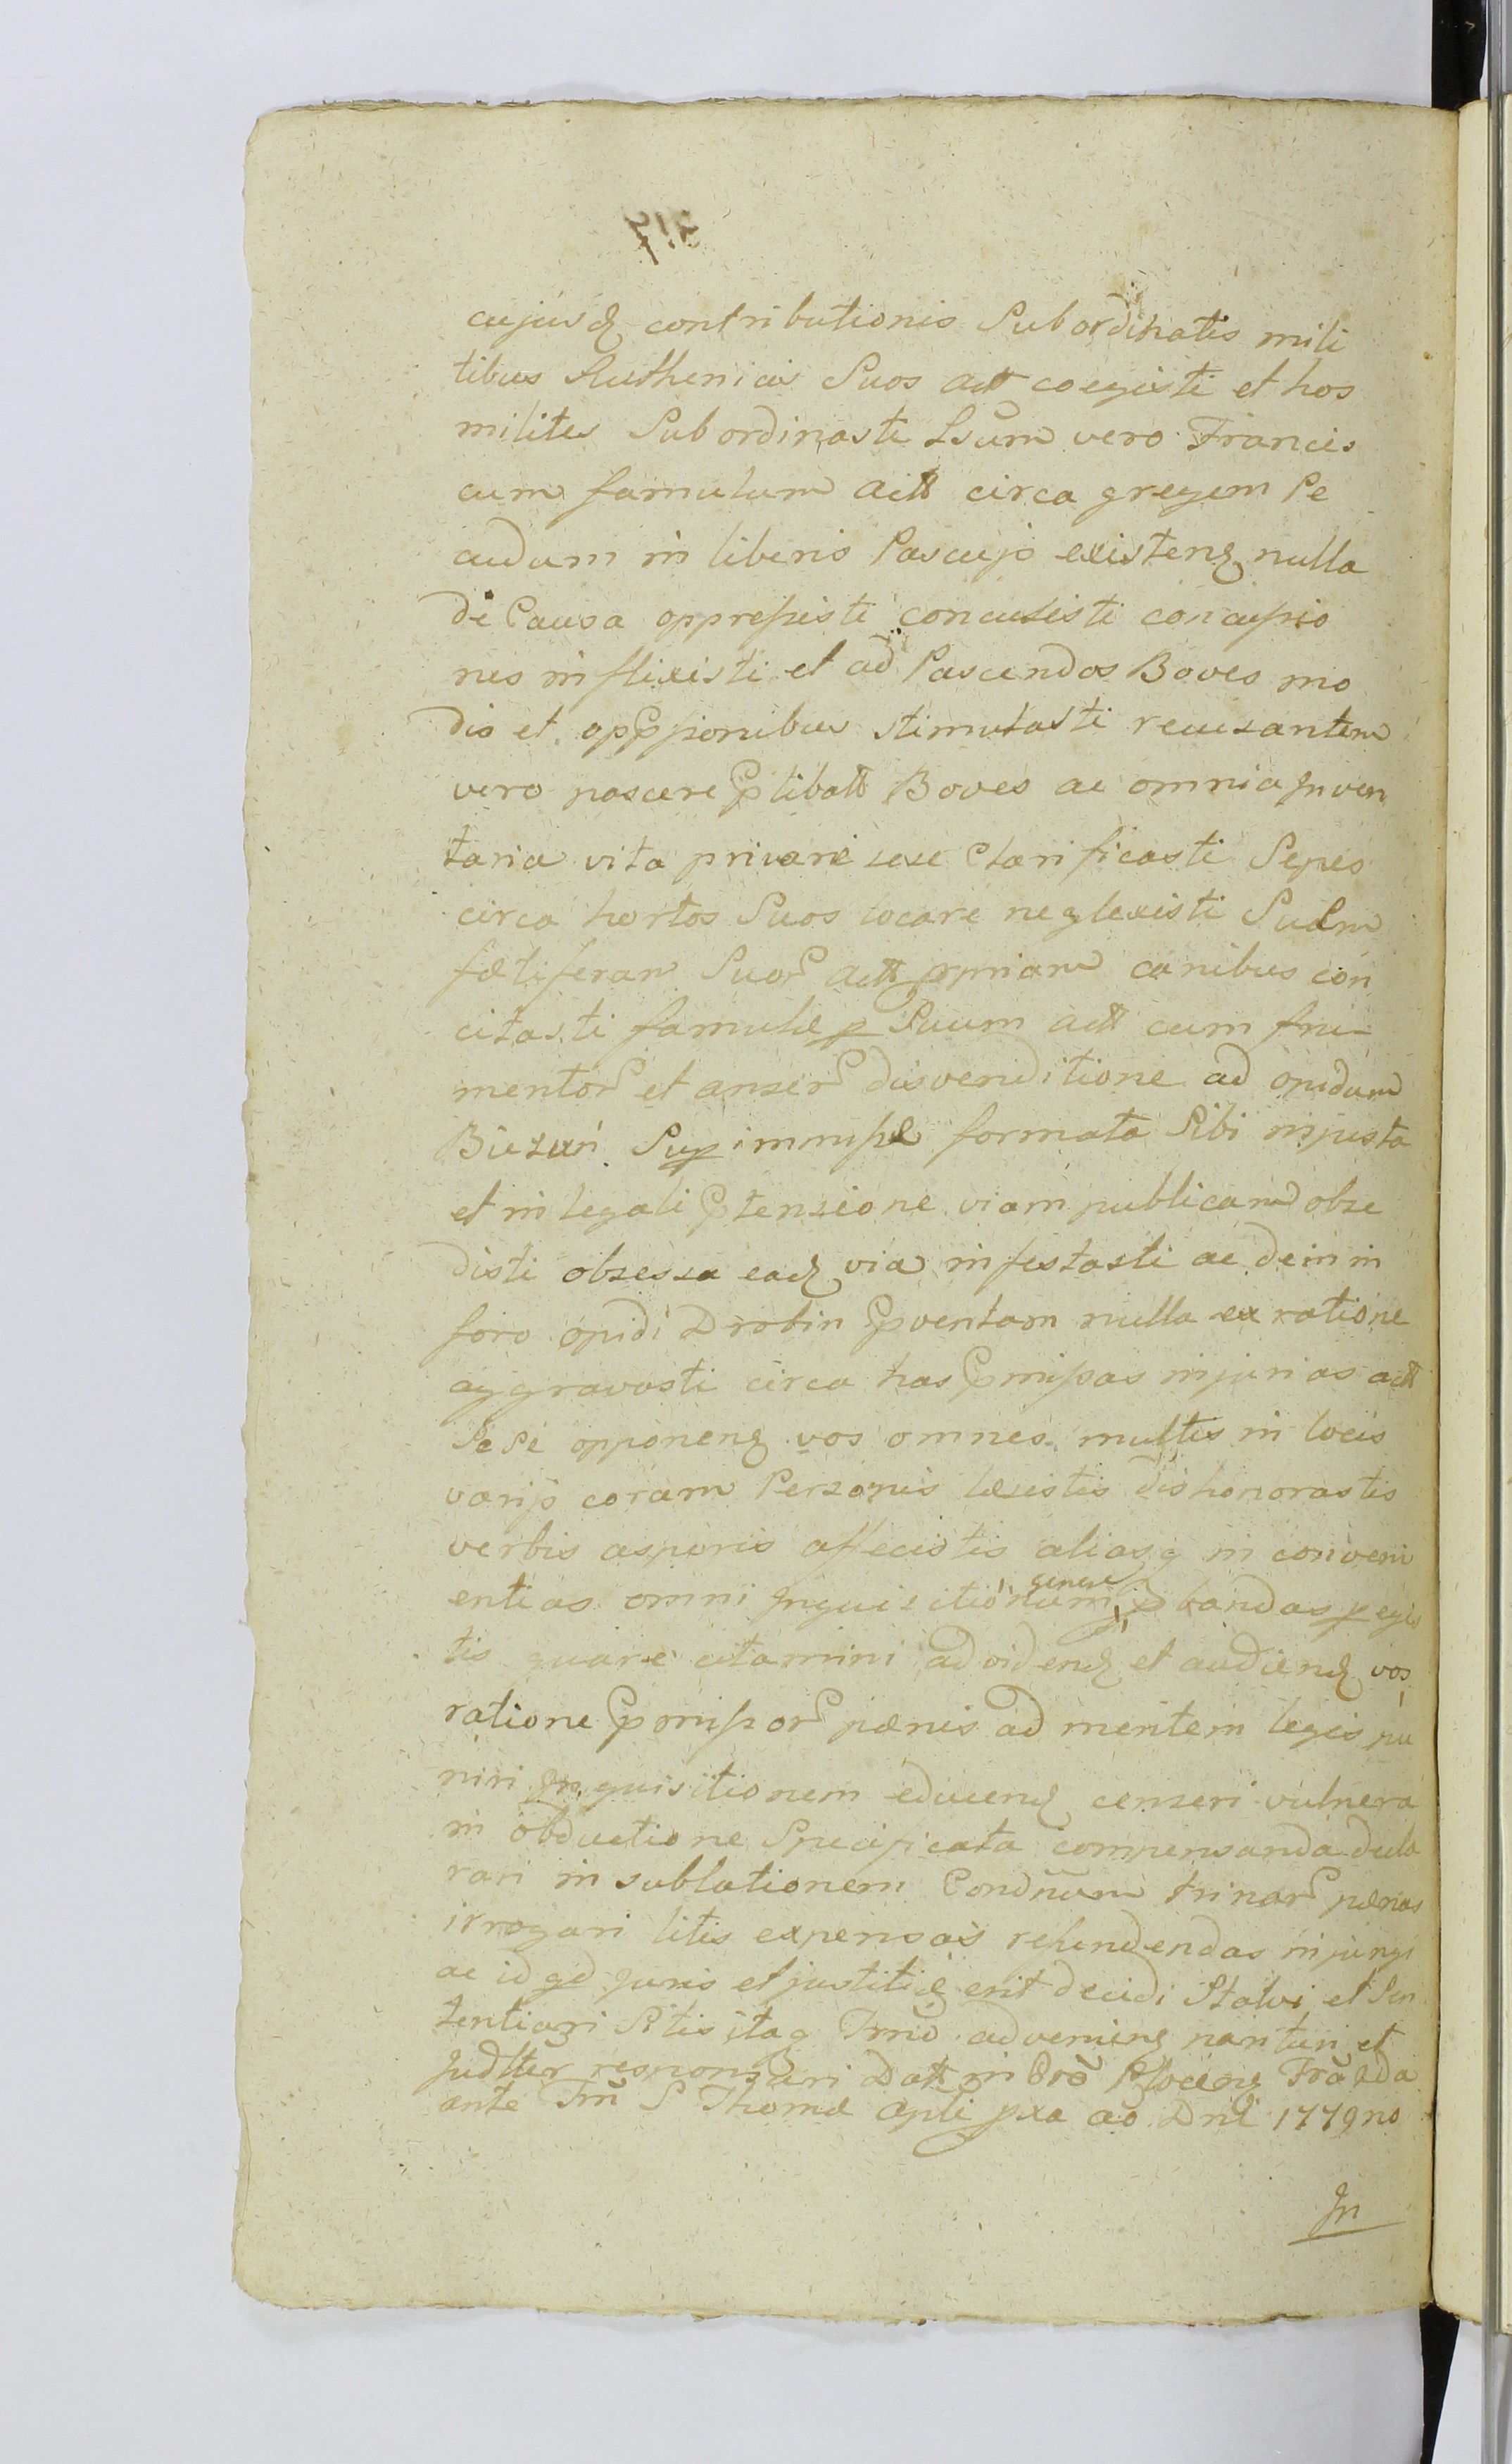 cujusq contributionis Subordinatis mili
tibus Ruthenicis Suos actt coegisti et hos
milites Subordinasti Lsum vero Francis
cum famulum actt circa gregem Pe
cudum in liberis Pascujs existenq nulla
de Causa oppressisti concusisti concussio
nes inflixisti et ad Pascendos Boves mo
dis et oppssionibus stimulasti recusantem
vero pascere plibatt Boves ac omnia Inven
taria vita privare sese Clarificasti Sepes
circa hortos Suos locare neglexisti Suem
fætiferam Suor actt ppriam canibus con
citasti famulæ p Suum actt cum fru-
mentor et anser disvenditione ad opidum
Biezuń Sup immissæ formata Sibi injusta
et in legali ptensione viam publicam obse
disti obsessa eaq via infestasti ac dein in
foro opidi Drobin pventam nulla ex ratione
aggravasti circa has pmissas injurias actt
Sese opponenq vos omnes multis in locis
varijs coram Personis læsistis dishonorastis
verbis asperis affecistis aliasq in conveni
entias omni Inquisitionum genere pbandas pegis
tis quare citamini ad videnq et audienq vos
ratione pmissor pænis ad mentem legis pu
niri Inquisitionem educenq censeri vulnera
in obductione Specificata compensanda decla
rari in sublationem Condnum trinar pænas
irrogari litis expensas refundendas injungi
ac id qd Juris et justitiæ erit decidi Statui et Sen
tentiari Sitis itaq Tmo advenienq parituri et
Judlter responsuri Datt in Cro Plocenq Fra 2da
ante Fm S Thomæ Apli pxa ao Dni 1779no
In